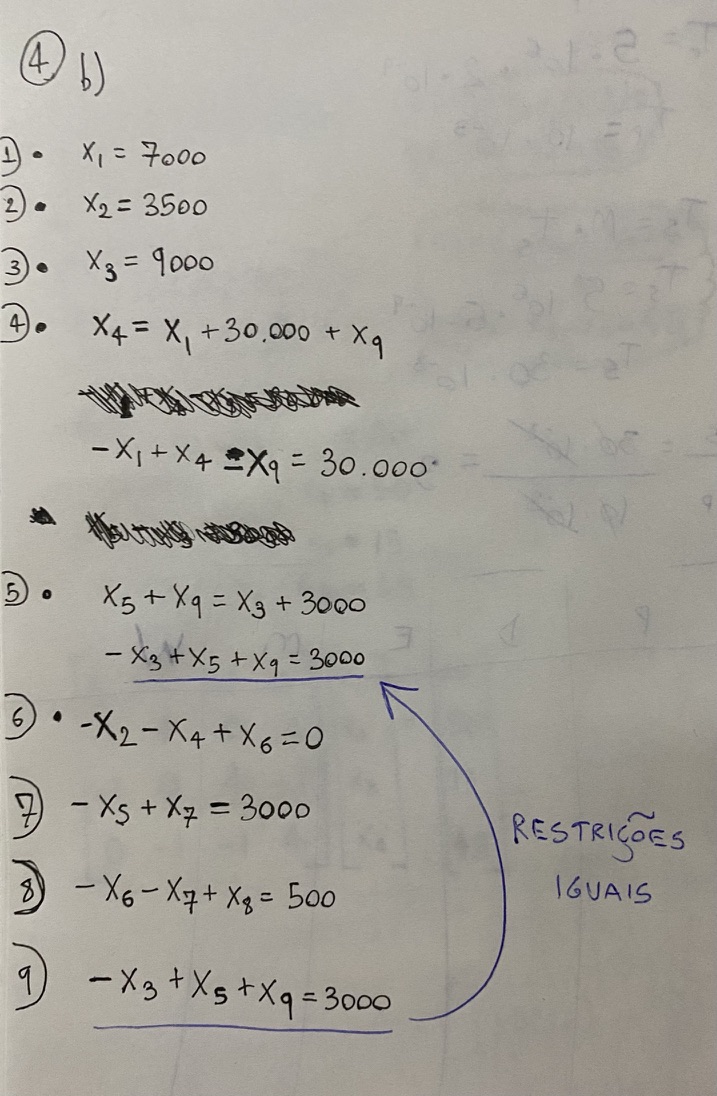 4 b)
1 • X1 = 7000
2 • X2 = 3500
3 • X3 = 9000
4 • X4 = X1 + 30.000 + X9
-X1 + X4 - X9 = 30.000
5 • X5 + X9 = X3 + 3000
- X3 + X5 + X9 = 3000
6 • -X2 - X4 + X6 = 0
7) - X5 + X7 = 3000
8) - X6 - X7 + X8 = 500
9) - X3 + X5 + X9 = 3000
RESTRIÇÕES
IGUAIS